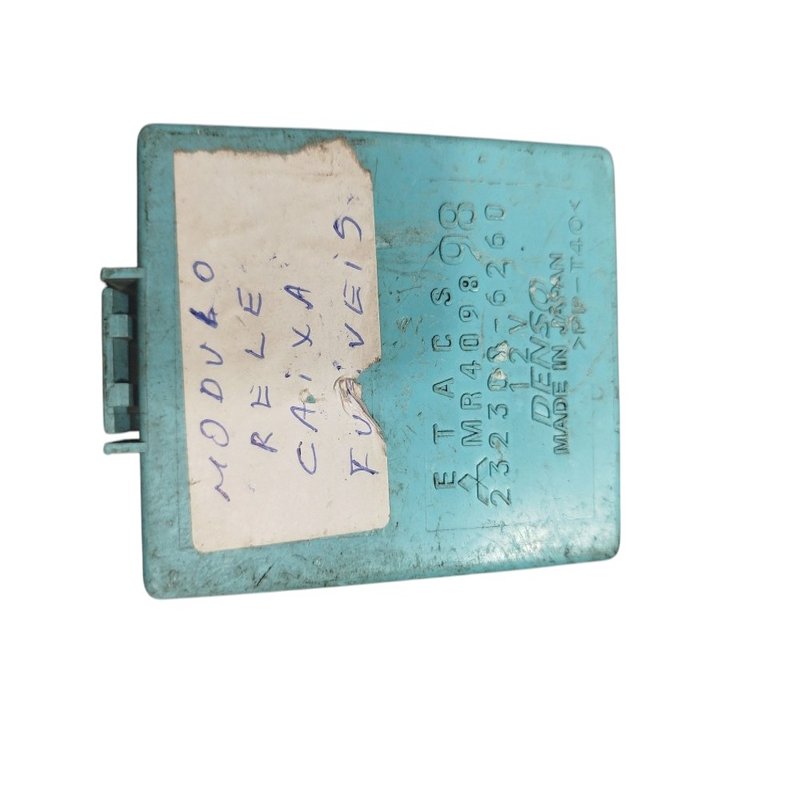 MODULO
RELE
CAiXA
FUSiVEiS.
E T A C S
MR409898
23230-6260
12V
DENSO
MADE IN JAPAN
>PP-T40<